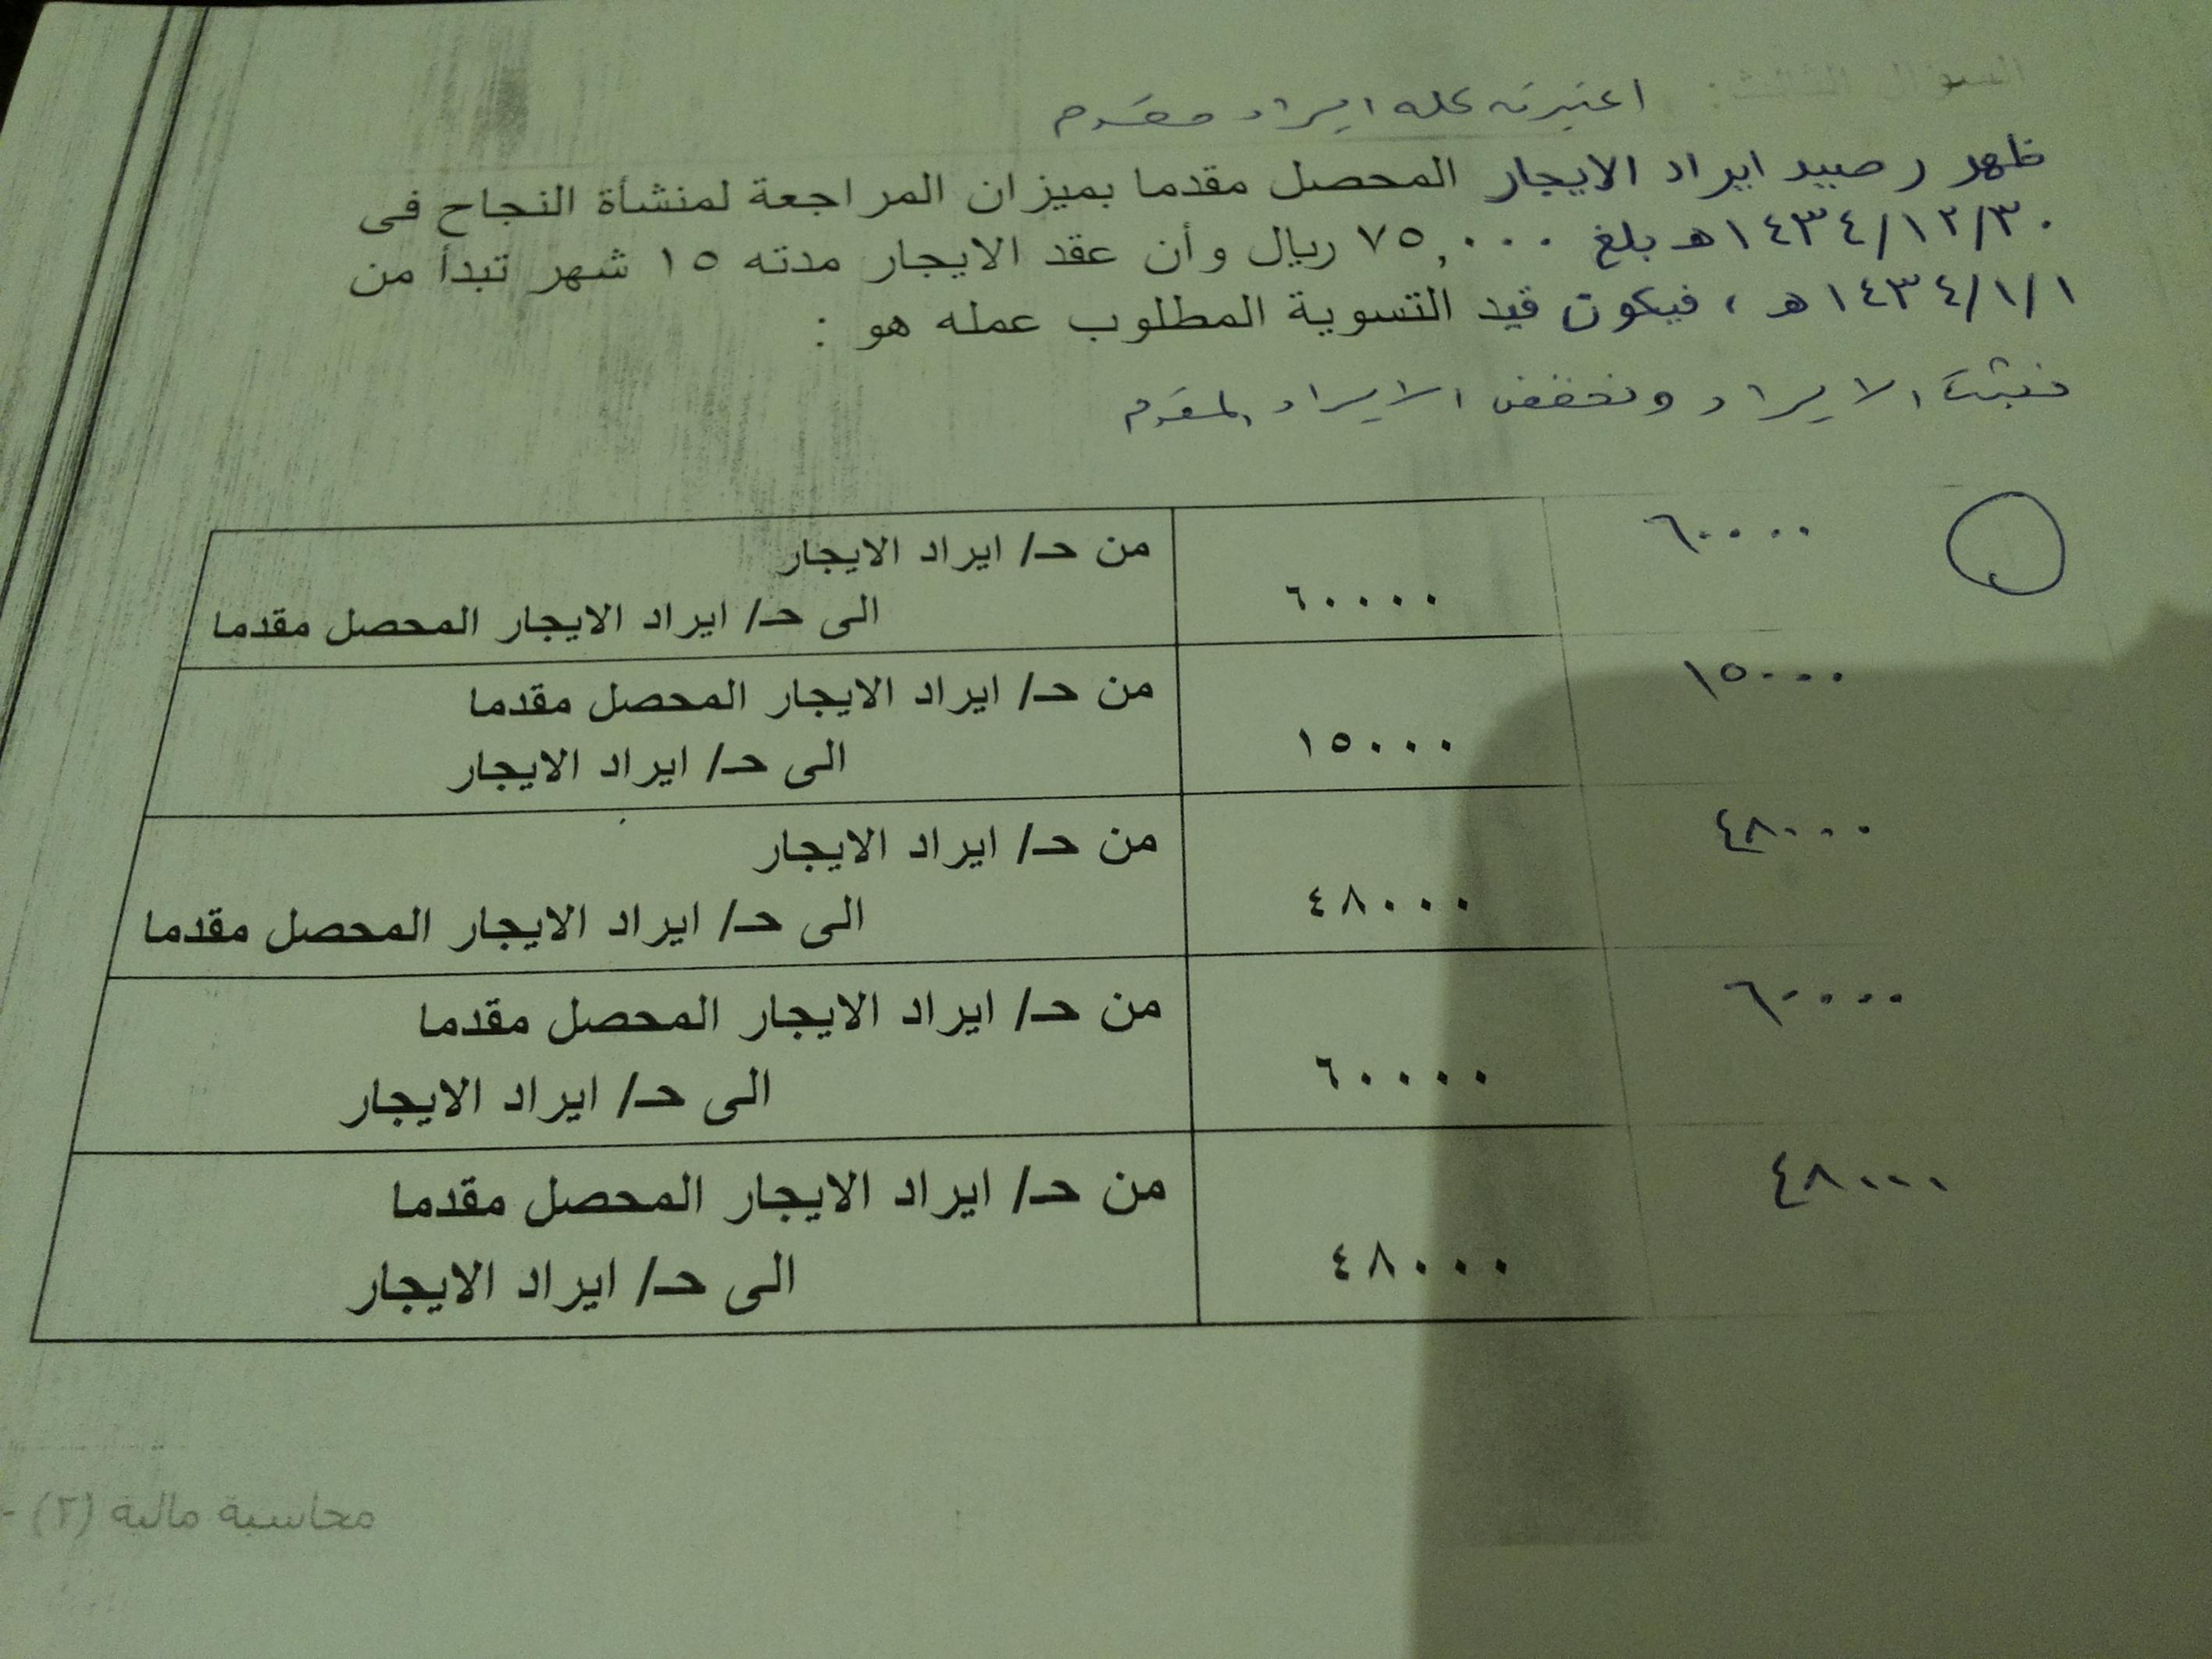 اعتبرته كله ايراد مقدم
ظهر رصيد ايراد الايجار المحصل مقدما بميزان المراجعة لمنشأة النجاح فى
١٤٣٤/١٢/٣٠هـ بلغ ٧٥,٠٠٠ ريال وأن عقد الايجار مدته ١٥ شهر تبدأ من
١٤٣٤/١/١هـ ، فيكون قيد التسوية المطلوب عمله هو :
نثبت الايراد ونخفض الايراد المقدم
٦٠٠٠٠ من حـ/ ايراد الايجار
٦٠٠٠٠ الى حـ/ ايراد الايجار المحصل مقدما
١٥٠٠٠ من حـ/ ايراد الايجار المحصل مقدما
١٥٠٠٠ الى حـ/ ايراد الايجار
٤٨٠٠٠ من حـ/ ايراد الايجار
٤٨٠٠٠ الى حـ/ ايراد الايجار المحصل مقدما
٦٠٠٠٠ من حـ/ ايراد الايجار المحصل مقدما
٦٠٠٠٠ الى حـ/ ايراد الايجار
٤٨٠٠٠ من حـ/ ايراد الايجار المحصل مقدما
٤٨٠٠٠ الى حـ/ ايراد الايجار
محاسبة مالية (٢) -